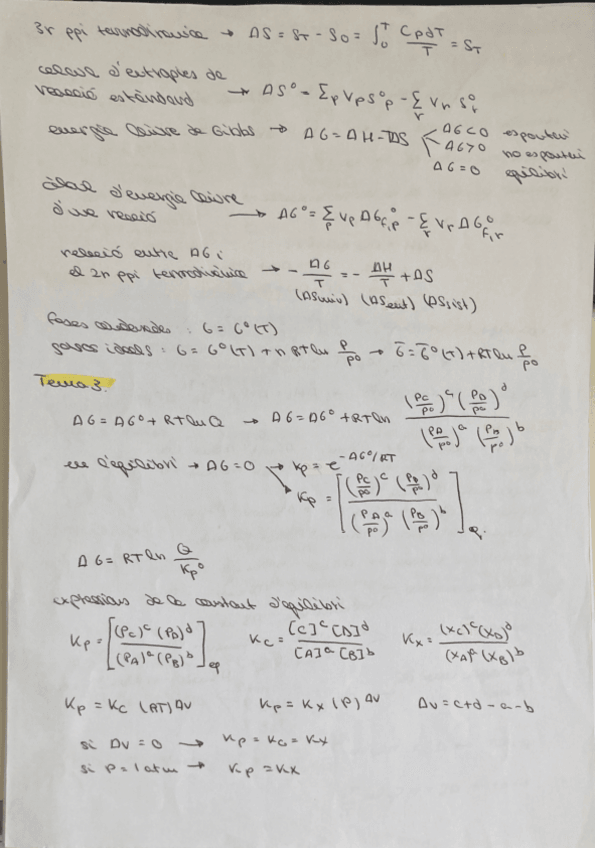 3r ppi termodinàmica → ΔS = S_T - S_0 = ∫₀ᵀ CpdT/T = S_T
càlcul d'entropies de
reacció estàndard → ΔS° = Σ_p ν_p S°_p - Σ_r ν_r S°_r
energia lliure de Gibbs → ΔG = ΔH - TΔS
ΔG<0 espontani
ΔG>0 no espontani
ΔG=0 equilibri
càlcul d'energia lliure
d'una reacció → ΔG° = Σ_p ν_p ΔG_f,p° - Σ_r ν_r ΔG_f,r°
relació entre ΔG i
el 2n ppi termodinàmica → - ΔG/T = - ΔH/T + ΔS
(ΔSuniv) (ΔSent) (ΔSsist)
fases condensades : G = G°(T)
gasos ideals : G = G°(T) + n RT ln P/P° → G̅ = G̅°(T) + RT ln P/P°
Tema 3.
ΔG = ΔG° + RT ln Q → ΔG = ΔG° + RT ln (Pc/P°)^c (P_D/P°)^d / (P_A/P°)^a (P_B/P°)^b
en l'equilibri → ΔG = 0 → Kp = e^-ΔG°/RT
Kp = [(Pc/P°)^c (P_D/P°)^d / (P_A/P°)^a (P_B/P°)^b]eq.
ΔG = RT ln Q/Kp°
expressions de la constant d'equilibri
Kp = [(Pc)^c (P_D)^d / (P_A)^a (P_B)^b]eq Kc = [C]^c [D]^d / [A]^a [B]^b Kx = (Xc)^c (X_D)^d / (X_A)^a (X_B)^b
Kp = Kc (RT)^Δν Kp = Kx (P)^Δν Δν = c+d-a-b
si Δν = 0 → Kp = Kc = Kx
si P = 1 atm → Kp = Kx